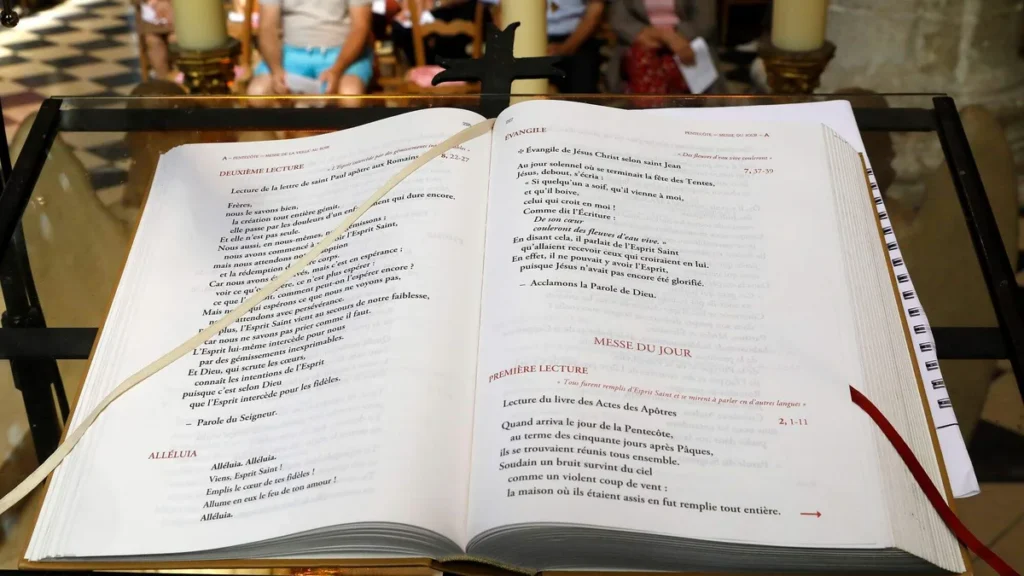 A – PENTECÔTE – MESSE DE LA VEILLE AU SOIR
DEUXIÈME LECTURE
8, 22-27
Lecture de la lettre de saint Paul apôtre aux Romains
Frères,
nous le savons bien,
la création tout entière gémit,
elle passe par les douleurs d'un enfantement qui dure encore.
Et elle n'est pas seule.
Nous aussi, en nous-mêmes, nous gémissons ;
nous avons commencé à recevoir l'Esprit Saint,
mais nous attendons notre adoption
et la rédemption de notre corps.
Car nous avons été sauvés, mais c'est en espérance ;
voir ce qu'on espère, ce n'est plus espérer :
ce que l'on voit, comment peut-on l'espérer encore ?
Mais nous qui espérons ce que nous ne voyons pas,
nous attendons avec persévérance.
plus, l'Esprit Saint vient au secours de notre faiblesse,
car nous ne savons pas prier comme il faut.
L'Esprit lui-même intercède pour nous
par des gémissements inexprimables.
Et Dieu, qui scrute les cœurs,
connaît les intentions de l'Esprit
puisque c'est selon Dieu
que l'Esprit intercède pour les fidèles.
– Parole du Seigneur.
ALLÉLUIA
Alléluia. Alléluia.
Viens, Esprit Saint !
Emplis le cœur de tes fidèles !
Allume en eux le feu de ton amour !
Alléluia.
PENTECÔTE – MESSE DU JOUR – A
ÉVANGILE
« Des fleuves d'eau vive couleront »
✠ Évangile de Jésus Christ selon saint Jean
7, 37-39
Au jour solennel où se terminait la fête des Tentes,
Jésus, debout, s'écria :
« Si quelqu'un a soif, qu'il vienne à moi,
et qu'il boive,
celui qui croit en moi !
Comme dit l'Écriture :
De son cœur
couleront des fleuves d'eau vive. »
En disant cela, il parlait de l'Esprit Saint
qu'allaient recevoir ceux qui croiraient en lui.
En effet, il ne pouvait y avoir l'Esprit,
puisque Jésus n'avait pas encore été glorifié.
– Acclamons la Parole de Dieu.
MESSE DU JOUR
PREMIÈRE LECTURE
« Tous furent remplis d'Esprit Saint et se mirent à parler en d'autres langues »
Lecture du livre des Actes des Apôtres
2, 1-11
Quand arriva le jour de la Pentecôte,
au terme des cinquante jours après Pâques,
ils se trouvaient réunis tous ensemble.
Soudain un bruit survint du ciel
comme un violent coup de vent :
la maison où ils étaient assis en fut remplie tout entière.